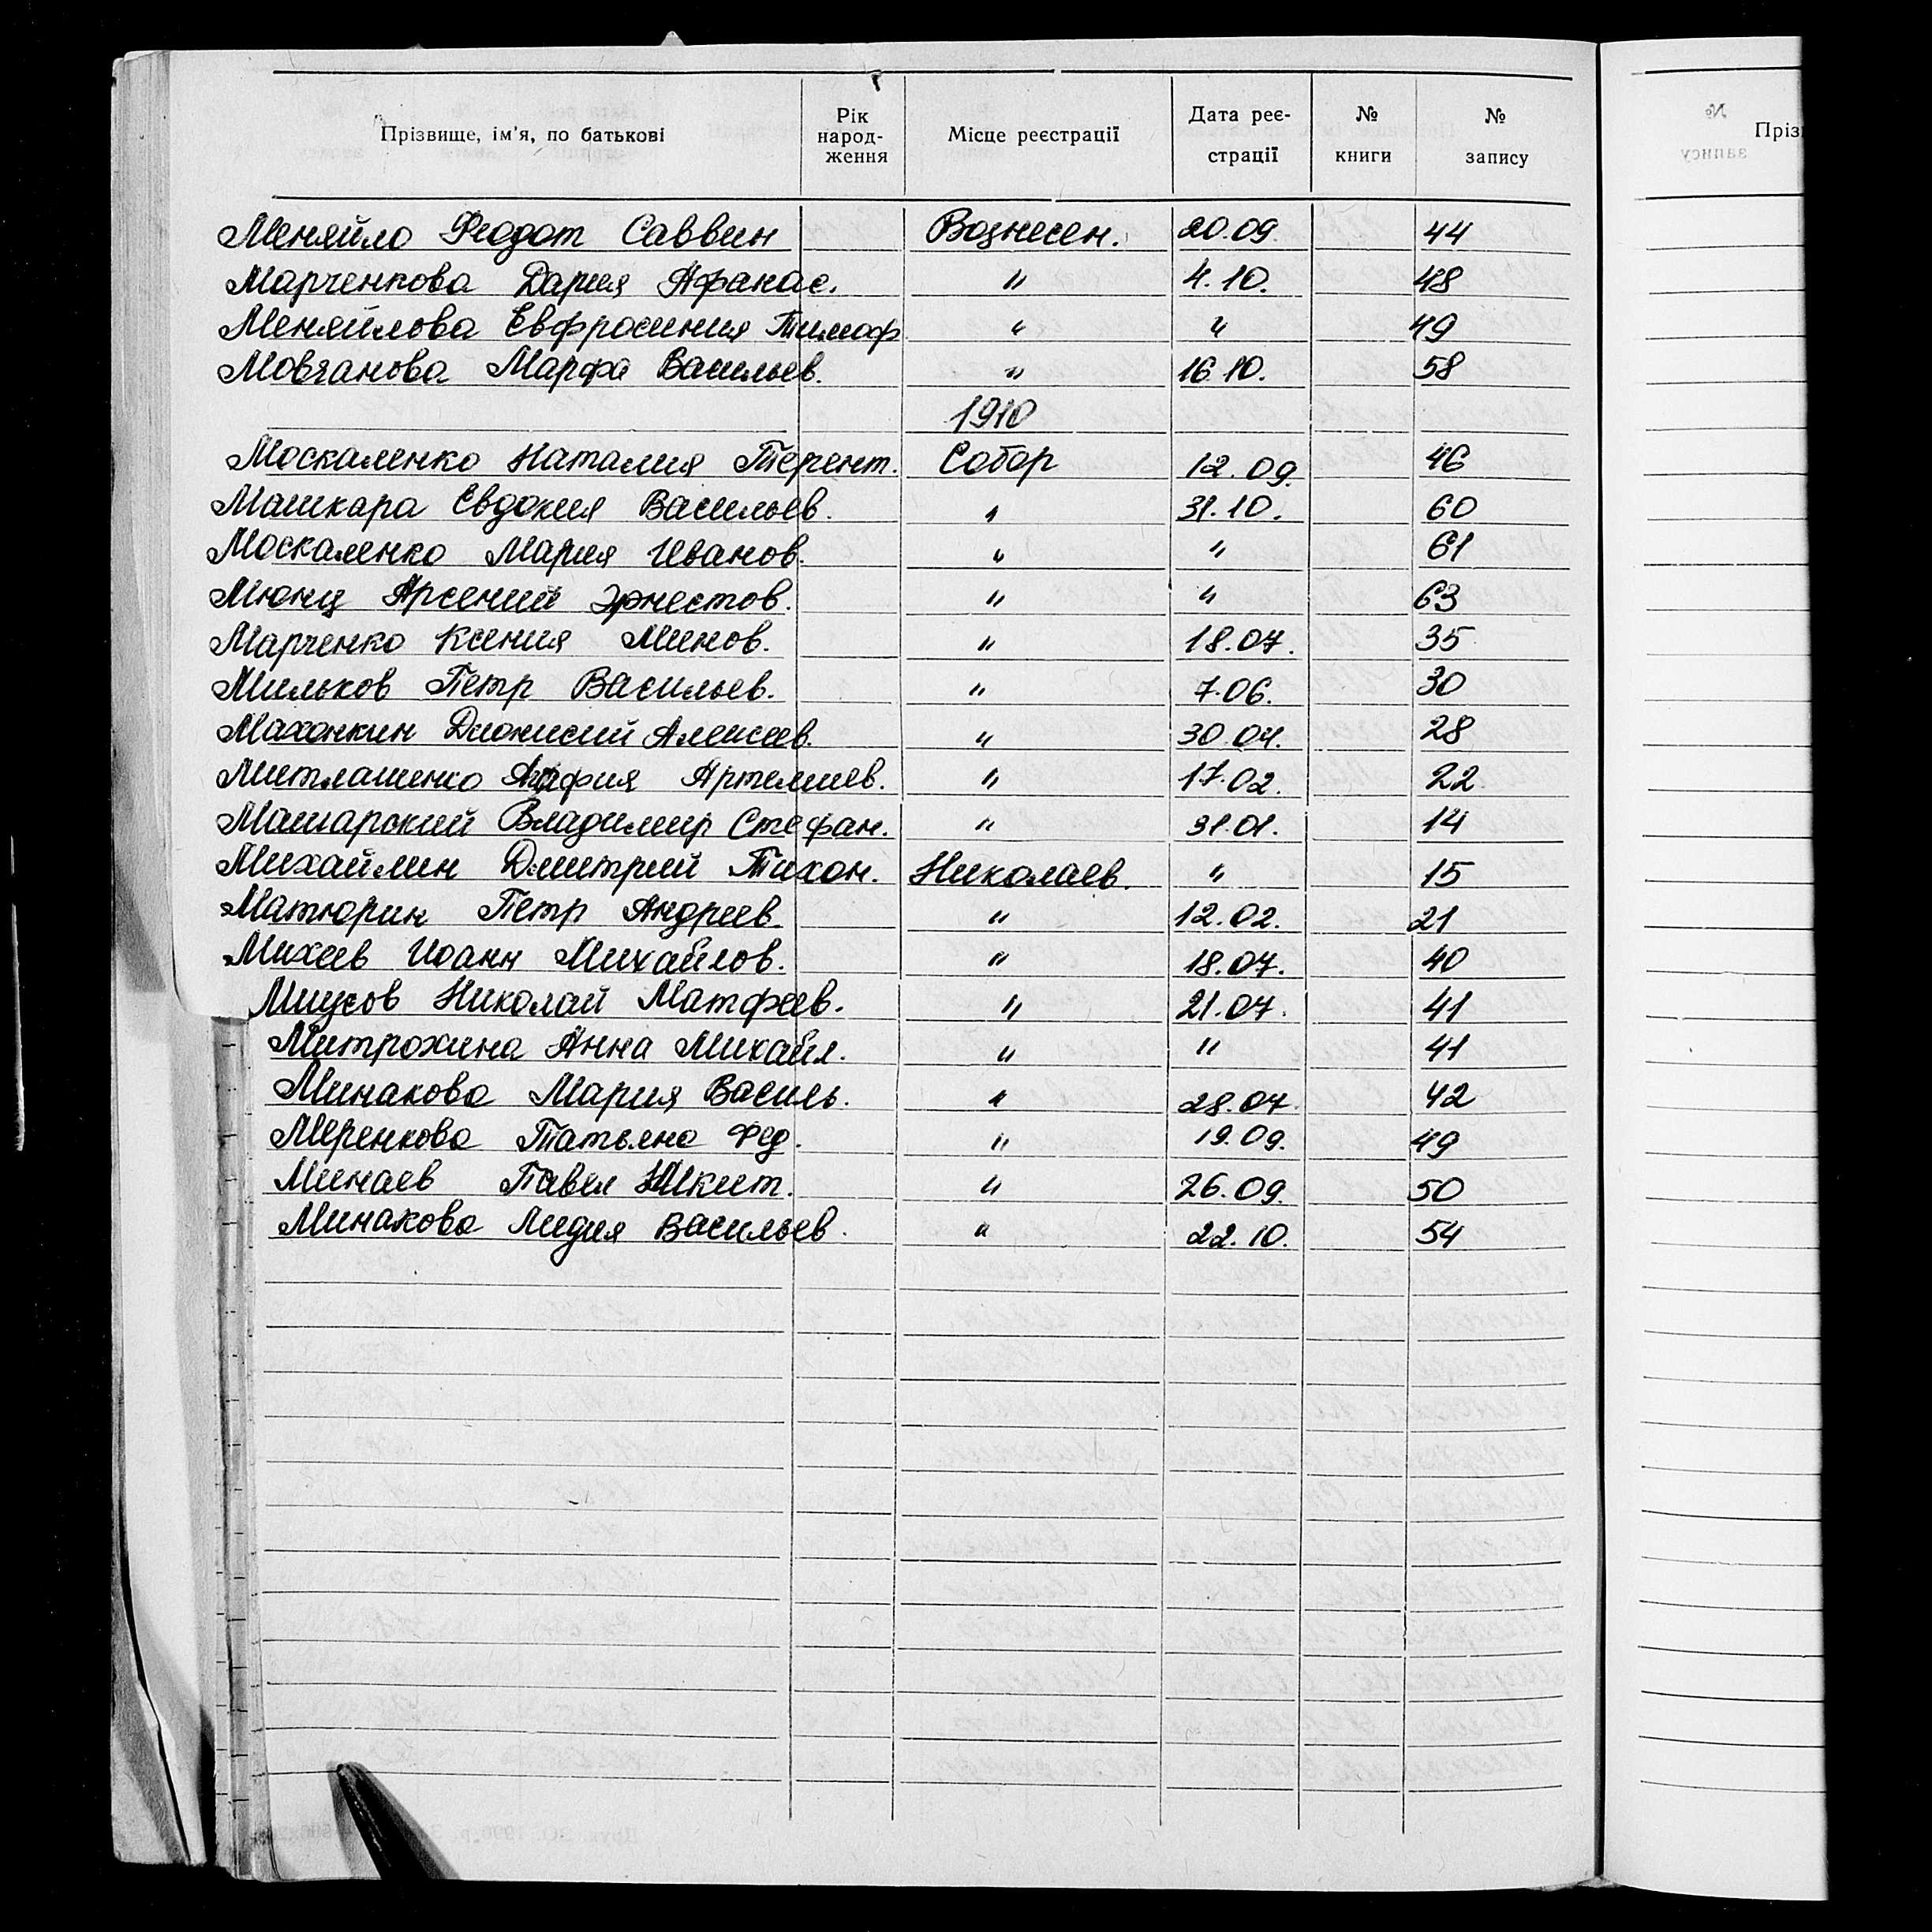 Прізвище, ім'я, по батькові Рік народження Місце реєстрації Дата реєстрації № книги № запису
Меняйло Феодот Саввин Вознесен. 20.09. 44
Марченкова Дария Афанас. " 4.10. 48
Меняйлова Евфросиния Тимоф " " 49
Мовчанова Марфа Васильев. " 16.10. 58
1910
Москаленко Наталия Терент. Собор 12.09. 46
Машкара Евдокия Васильев. " 31.10. 60
Москаленко Мария Иванов. " " 61
Мюнц Арсений Эрнестов. " " 63
Марченко Ксения Минов. " 18.07. 35
Мильков Петр Васильев. " 7.06. 30
Махонкин Дионисий Алексеев. " 30.04. 28
Митлашенко Агафия Артемиев. " 17.02. 22
Машарский Владимир Стефан. " 31.01. 14
Михайлин Дмитрий Тихон. Николаев. " 15
Матюрин Петр Андреев. " 12.02. 21
Михеев Иоанн Михайлов. " 18.07. 40
Миусов Николай Матфеев. " 21.07. 41
Митрохина Анна Михайл. " " 41
Минакова Мария Василь. " 28.07. 42
Меренкова Татьяна Фед. " 19.09. 49
Минаев Павел Никит. " 26.09. 50
Минакова Лидия Васильев. " 22.10. 54
№ запису
Пріз